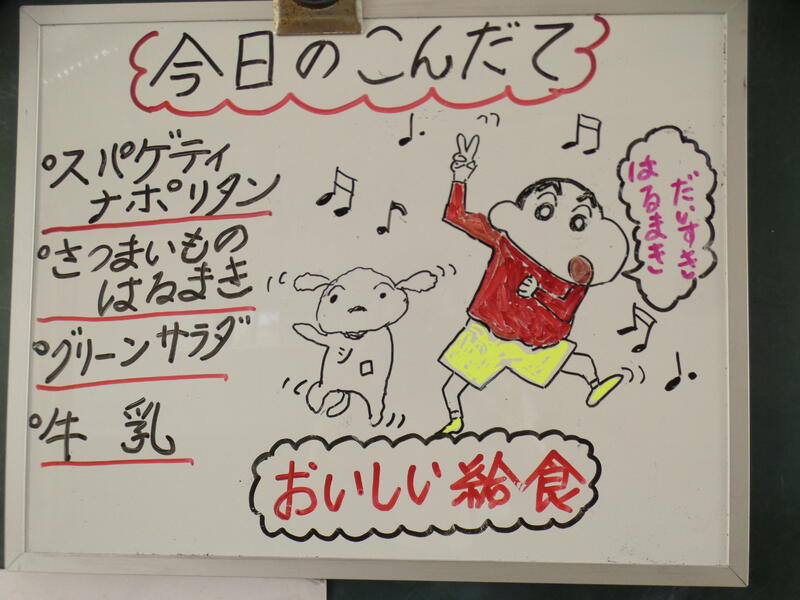 今日のこんだて
°スパゲティ
ナポリタン
°さつまいもの
はるまき
°グリーンサラダ
°牛乳
だいすき
はるまき
おいしい給食